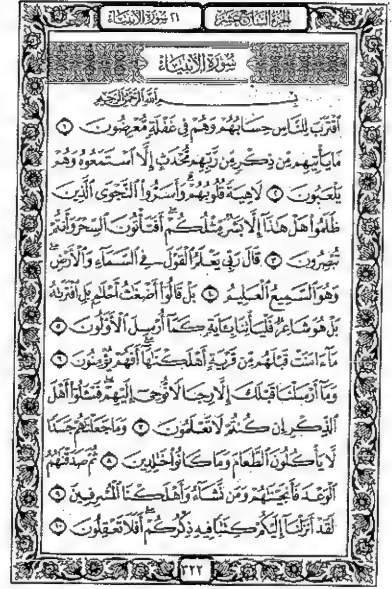 الجزء السابع عشر ٢١ سورة الأنبياء
سُورَةُ الأنبيَاء
بِسْمِ اللَّهِ الرَّحْمَٰنِ الرَّحِيمِ
ٱقْتَرَبَ لِلنَّاسِ حِسَابُهُمْ وَهُمْ فِى غَفْلَةٍ مُّعْرِضُونَ ١
مَا يَأْتِيهِم مِّن ذِكْرٍ مِّن رَّبِّهِم مُّحْدَثٍ إِلَّا ٱسْتَمَعُوهُ وَهُمْ
يَلْعَبُونَ ٢ لَاهِيَةً قُلُوبُهُمْ وَأَسَرُّوا۟ ٱلنَّجْوَى ٱلَّذِينَ
ظَلَمُوا۟ هَلْ هَٰذَآ إِلَّا بَشَرٌ مِّثْلُكُمْ أَفَتَأْتُونَ ٱلسِّحْرَ وَأَنتُمْ
تُبْصِرُونَ ٣ قَالَ رَبِّى يَعْلَمُ ٱلْقَوْلَ فِى ٱلسَّمَآءِ وَٱلْأَرْضِ
وَهُوَ ٱلسَّمِيعُ ٱلْعَلِيمُ ٤ بَلْ قَالُوٓا۟ أَضْغَٰثُ أَحْلَٰمٍ بَلِ ٱفْتَرَىٰهُ
بَلْ هُوَ شَاعِرٌ فَلْيَأْتِنَا بِـَٔايَةٍ كَمَآ أُرْسِلَ ٱلْأَوَّلُونَ ٥
مَآ ءَامَنَتْ قَبْلَهُم مِّن قَرْيَةٍ أَهْلَكْنَٰهَآ أَفَهُمْ يُؤْمِنُونَ ٦
وَمَآ أَرْسَلْنَا قَبْلَكَ إِلَّا رِجَالًا نُّوحِىٓ إِلَيْهِمْ فَسْـَٔلُوٓا۟ أَهْلَ
ٱلذِّكْرِ إِن كُنتُمْ لَا تَعْلَمُونَ ٧ وَمَا جَعَلْنَٰهُمْ جَسَدًا
لَّا يَأْكُلُونَ ٱلطَّعَامَ وَمَا كَانُوا۟ خَٰلِدِينَ ٨ ثُمَّ صَدَقْنَٰهُمُ
ٱلْوَعْدَ فَأَنجَيْنَٰهُمْ وَمَن نَّشَآءُ وَأَهْلَكْنَا ٱلْمُسْرِفِينَ ٩
لَقَدْ أَنزَلْنَآ إِلَيْكُمْ كِتَٰبًا فِيهِ ذِكْرُكُمْ أَفَلَا تَعْقِلُونَ ١٠
٣٢٢